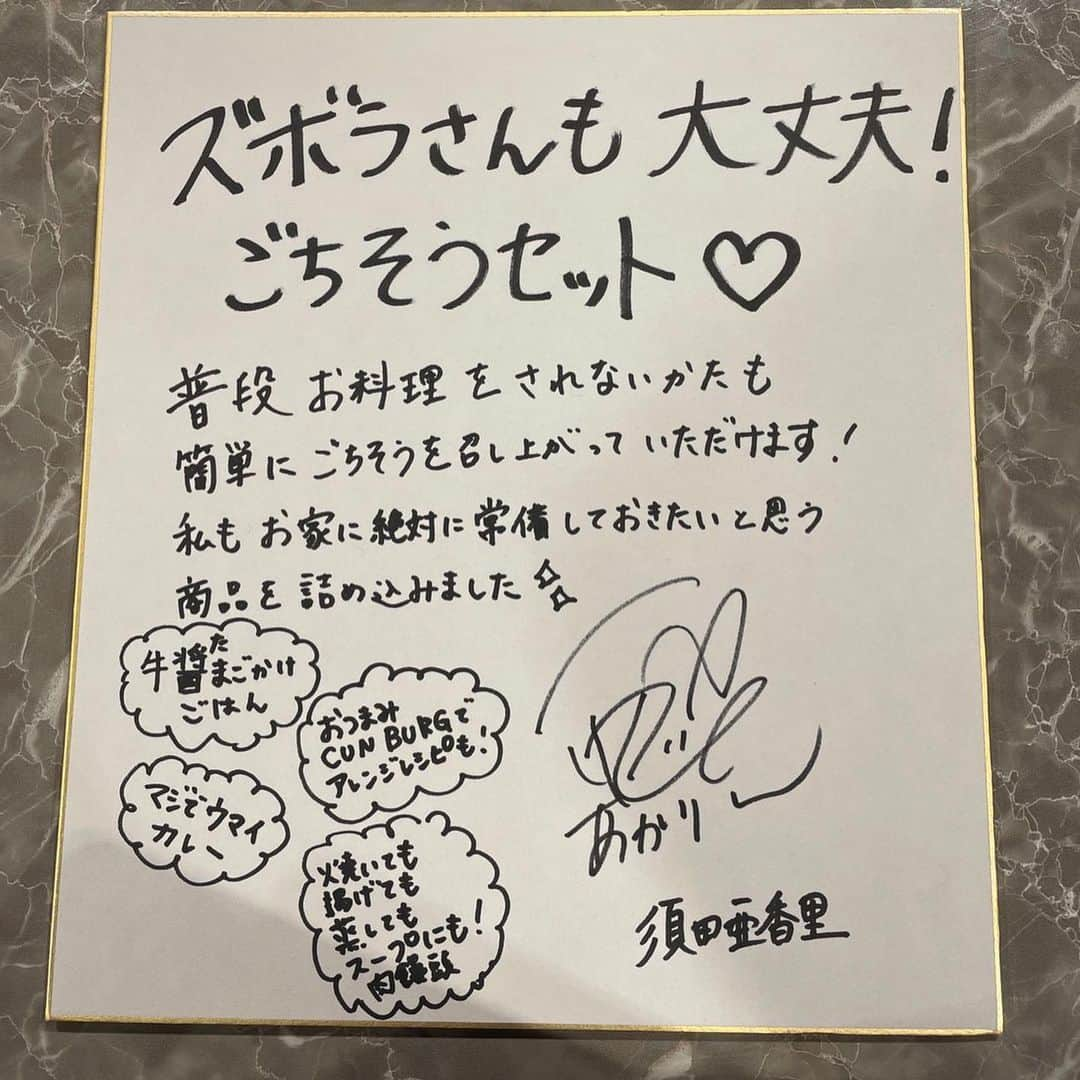 ズボラさんも大丈夫!
ごちそうセット♡
普段お料理をされないかたも
簡単にごちそうを召し上がっていただけます!
私もお家に絶対に常備しておきたいと思う
商品を詰め込みました
牛醤たまごかけ
ごはん
おつまみ
CUN BURGで
アレンジレシピも!
マジでウマイ
カレー
焼いても
揚げても
蒸しても
スープにも!
肉饅頭
あかりん
須田亜香里